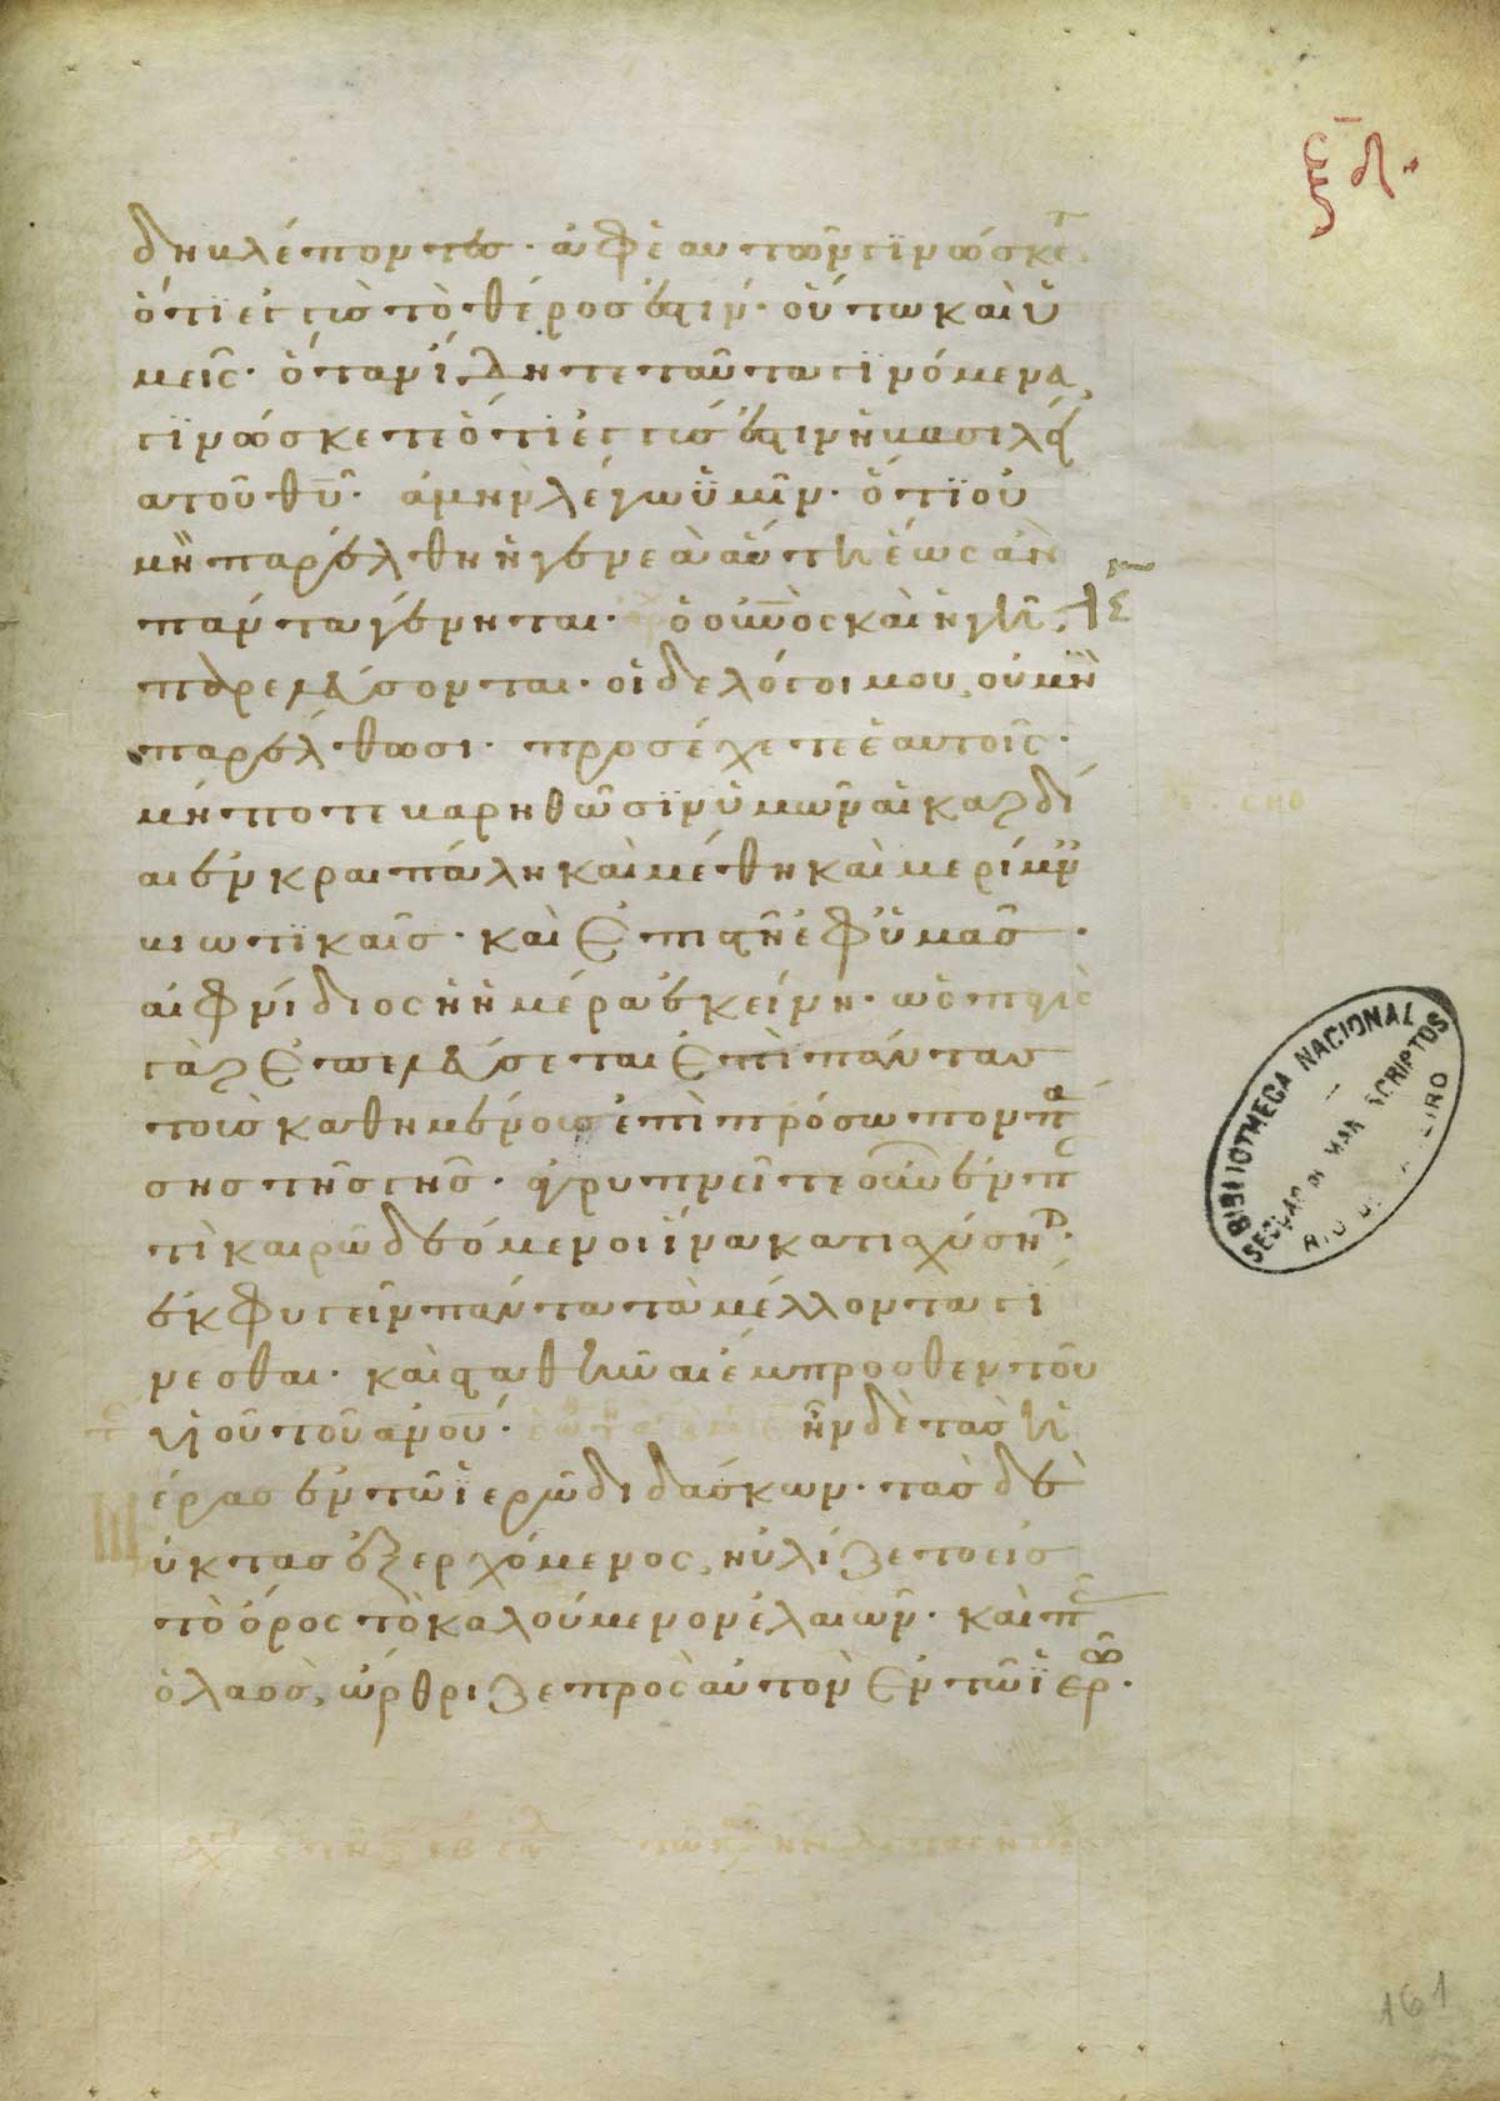 ξδ
δη βλέποντες· ἀφ' ἑαυτῶν γϊνώσκετ
ὅτϊ ἐγγὺς τὸ θέρος ἐστίν· οὕτω καὶ ὑ
μεῖς· ὅταν ἴδητε ταῦτα γϊνόμενα,
γϊνώσκετε ὅτϊ ἐγγύς ἐστιν ἡ βασιλεί
α τοῦ θυ· ἀμὴν λέγω ὑμῖν· ὅτϊ οὐ
μὴ παρέλθη ἡ γενεὰ αὕτη ἕως ἂν
πάντα γένηται· ὁ οὐνὸς καὶ ἡ γῆ
παρελεύσονται· οἱ δὲ λόγοι μου, οὐ μὴ
παρέλθωσι· προσέχετε ἑαυτοῖς·
μήποτε βαρηθῶσϊν ὑμῶν αἱ καρδί
αι ἐν κραιπάλη καὶ μέθη καὶ μερίμν
βιωτϊκαῖς· καὶ ἐπιστῆ ἐφ' ὑμᾶς
αἰφνίδιος ἡ ἡμέρα ἐκείνη· ὡς παγὶς
γὰρ ἐπελεύσεται ἐπὶ πάντας
τοὺς καθημένους ἐπὶ πρόσωπον πα
σης τῆς γῆς· ἀγρυπνεῖτε οὖν ἐν π
τὶ καιρῶ δεόμενοι ἵνα κατισχύσητ
ἐκφυγεῖν πάντα τὰ μέλλοντα γί
νεσθαι· καὶ σταθῆναι ἔμπροσθεν τοῦ
υἱοῦ τοῦ ἀνου· ἦν δὲ τὰς ἡ
έρας ἐν τῶ ἱερῶ διδάσκων· τὰς δὲ
ύκτας ἐξερχόμενος, ηὐλίζετο εἰς
τὸ ὄρος τὸ καλούμενον ἐλαιῶν· καὶ π
ὁ λαὸς, ὤρθριζε πρὸς αὐτὸν ἐν τῶ ἱερῶ·
BIBLIOTHECA NACIONAL
SECÇÃO DE MANUSCRIPTOS
RIO DE JANEIRO
161